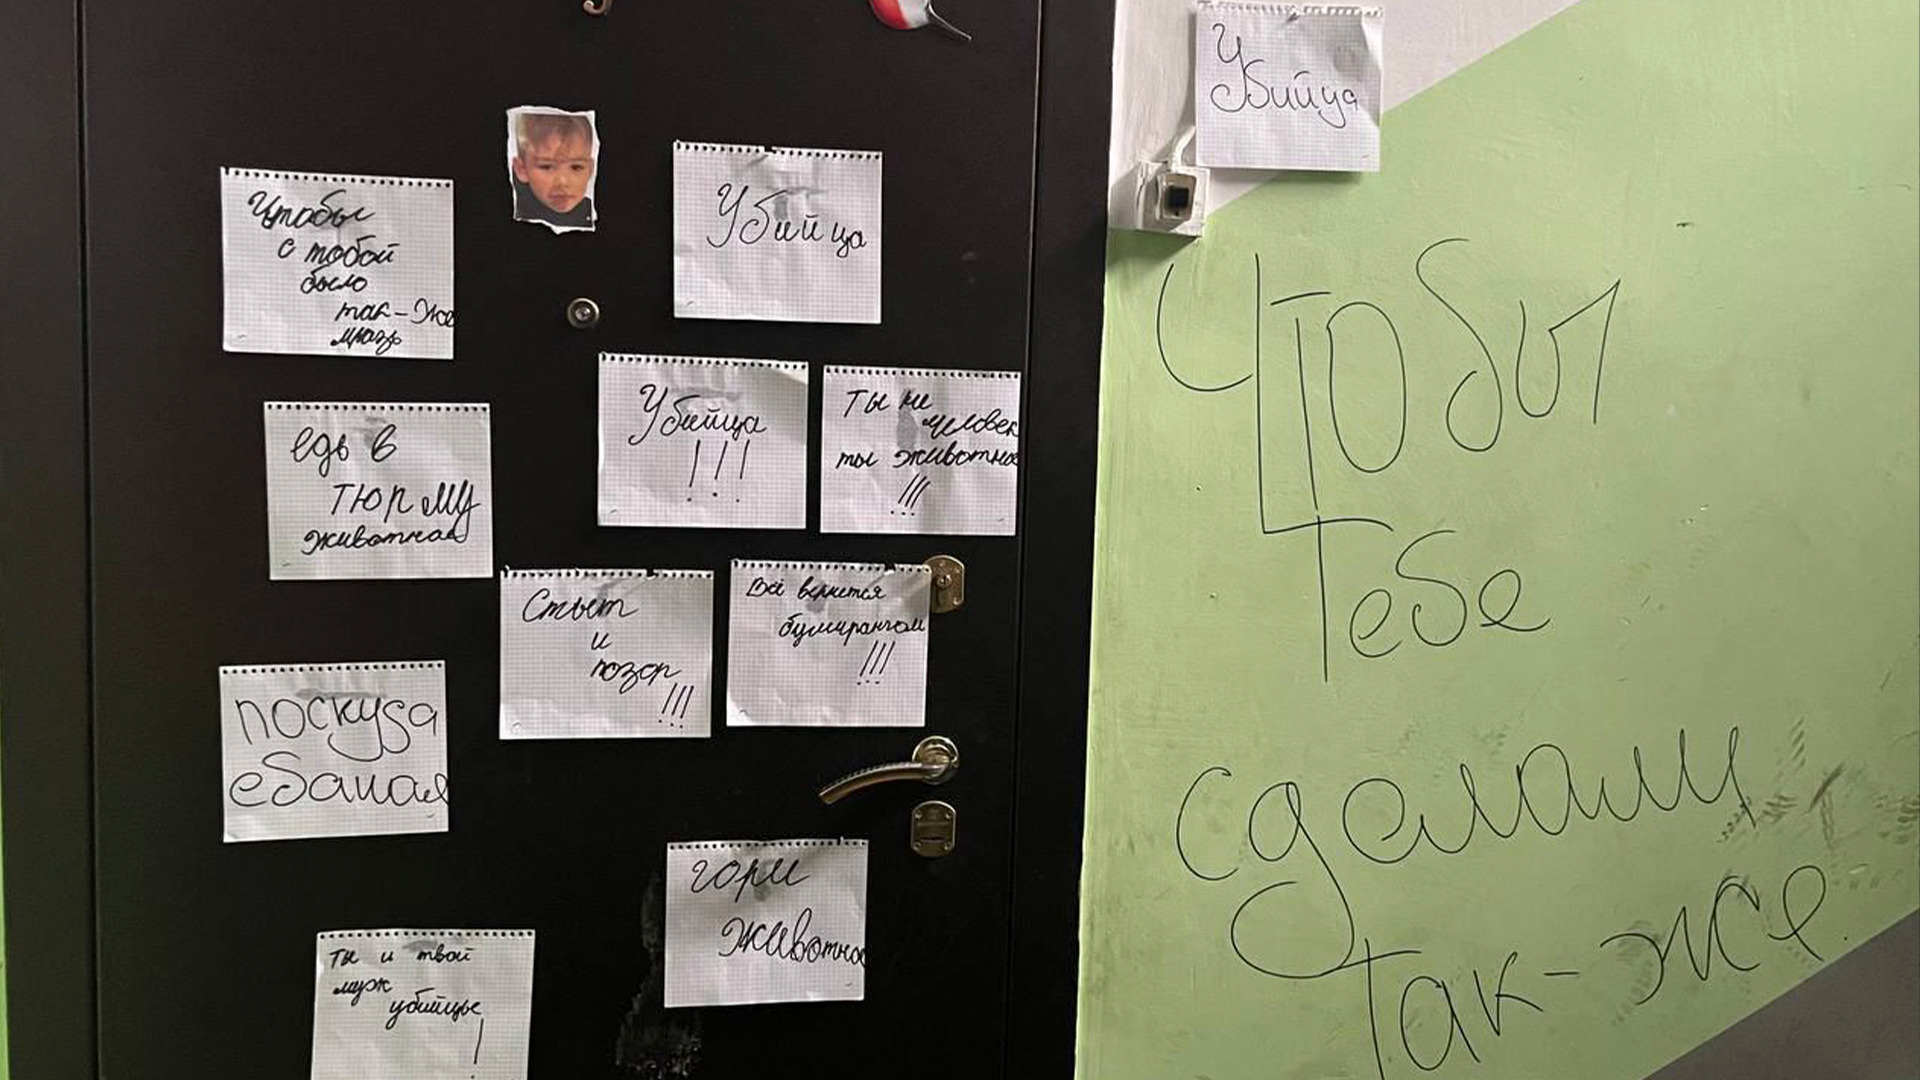 Убийца
Чтобы
с тобой
было
так-же
мразь
Убийца
едь в
тюрму
животная
Убийца
!!!
Ты не
человек
ты животное
!!!
Стыт
и
позор
!!!
Всё вернется
бумирангом
!!!
поскуда
ебаная
гори
животное
ты и твой
муж
убийцы
!
Чтобы
Тебе
сделали
так-же